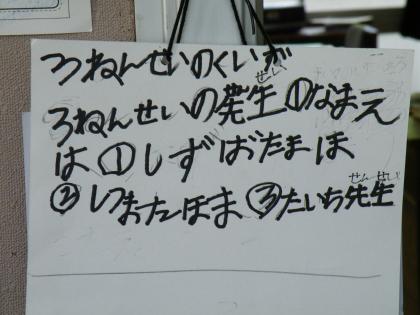 ろねんせいのくいが
せい
ろねんせいの発生①なまえ
は①しずおたまほ
せんせい
②しおたほま③たいち先生